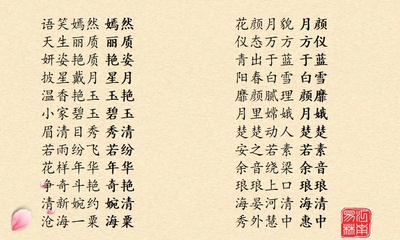 语笑嫣然 嫣然
天生丽质 丽质
妍姿艳质 艳姿
披星戴月 星月
温香艳玉 玉艳
小家碧玉 碧玉
眉清目秀 秀清
若雨纷飞 若纷
花样年华 年华
争奇斗艳 奇艳
清新婉约 婉清
沧海一粟 海粟
花颜月貌 月颜
仪态万方 方仪
青出于蓝 于蓝
阳春白雪 雪阳
靡颜腻理 颜靡
月里嫦娥 月嫦
楚楚动人 楚楚
安之若素 若素
余音绕梁 余音
琅琅上口 琅琅
海晏河清 海清
秀外慧中 惠中